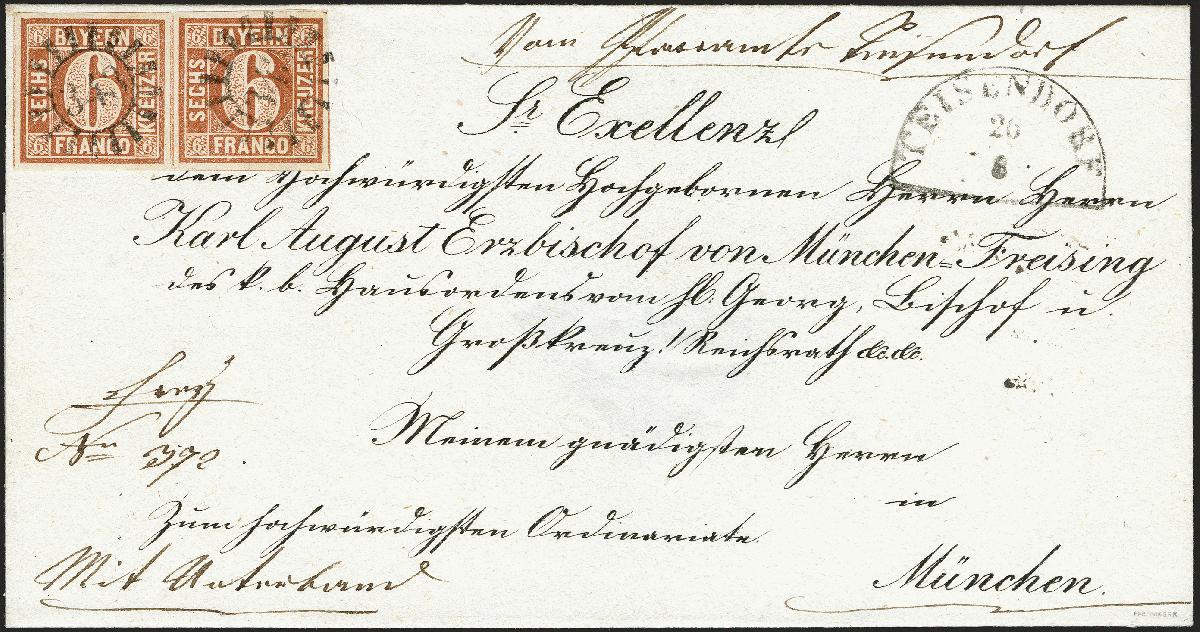 BAYERN BAYERN
SECHS 6 KREUZER SECHS 6 KREUZER
FRANCO FRANCO
Vom Pfarramte Teisendorf
TEISENDORF
26
6
Sr Exellenz
dem Hochwürdigsten Hochgebornen Herrn Herrn
Karl August Erzbischof von München=Freising
des k. b. Hausordens vom hl. Georg, Bischof u.
Großkreuz! Reichsrath &c. &c.
frey
No 372
Meinem gnädigsten Herrn
in
Zum hochwürdigsten Ordinariate
Mit Unterband
München.